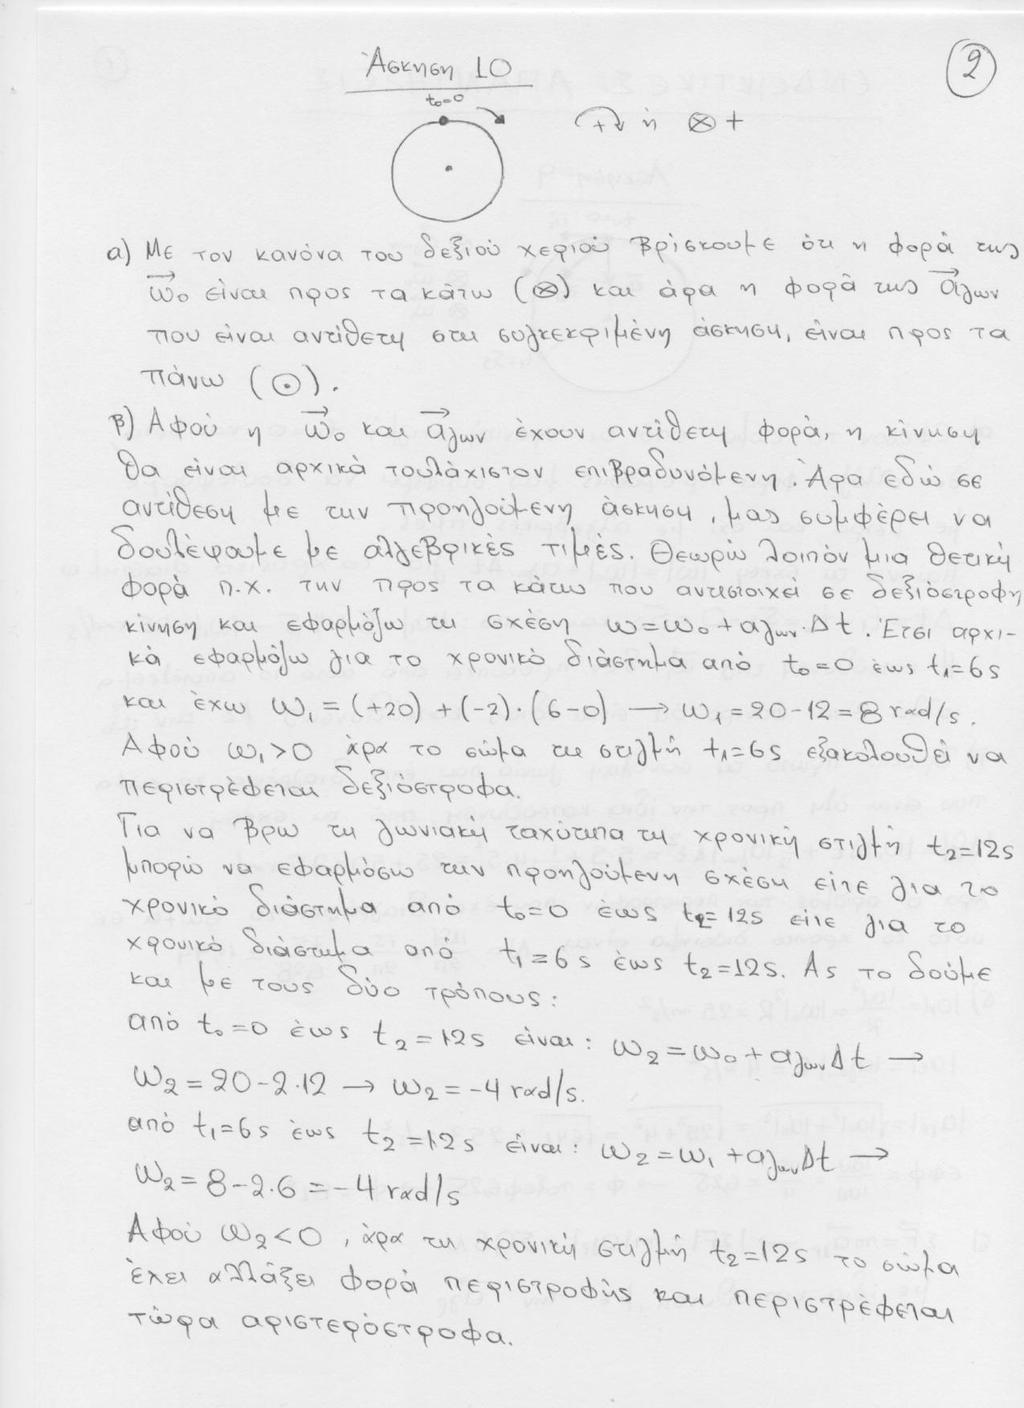 Άσκηση 10
2
t₀=0
+ ή ⊗ +
α) Με τον κανόνα του δεξιού χεριού βρίσκουμε ότι η φορά της
ω⃗₀ είναι προς τα κάτω (⊗) και άρα η φορά της α⃗γων
που είναι αντίθετη στη συγκεκριμένη άσκηση, είναι προς τα
πάνω (⊙).
β) Αφού η ω⃗₀ και α⃗γων έχουν αντίθετη φορά, η κίνηση
θα είναι αρχικά τουλάχιστον επιβραδυνόμενη. Άρα εδώ σε
αντίθεση με την προηγούμενη άσκηση, μας συμφέρει να
δουλέψουμε με αλγεβρικές τιμές. Θεωρώ λοιπόν μια θετική
φορά π.χ. την προς τα κάτω που αντιστοιχεί σε δεξιόστροφη
κίνηση και εφαρμόζω τη σχέση ω=ω₀+αγων·Δt. Έτσι αρχι-
κά εφαρμόζω για το χρονικό διάστημα από t₀=0 έως t₁=6s
και έχω ω₁=(+20)+(-2)·(6-0) → ω₁=20-12=8 rad/s.
Αφού ω₁>0 άρα το σώμα τη στιγμή t₁=6s εξακολουθεί να
περιστρέφεται δεξιόστροφα.
Για να βρω τη γωνιακή ταχύτητα τη χρονική στιγμή t₂=12s
μπορώ να εφαρμόσω την προηγούμενη σχέση είτε για το
χρονικό διάστημα από t₀=0 έως t₂=12s είτε για το
χρονικό διάστημα από t₁=6s έως t₂=12s. Ας το δούμε
και με τους δύο τρόπους:
από t₀=0 έως t₂=12s είναι: ω₂=ω₀+αγωνΔt →
ω₂=20-2·12 → ω₂=-4 rad/s.
από t₁=6s έως t₂=12s είναι: ω₂=ω₁+αγωνΔt →
ω₂=8-2·6=-4 rad/s
Αφού ω₂<0, άρα τη χρονική στιγμή t₂=12s το σώμα
έχει αλλάξει φορά περιστροφής και περιστρέφεται
τώρα αριστερόστροφα.